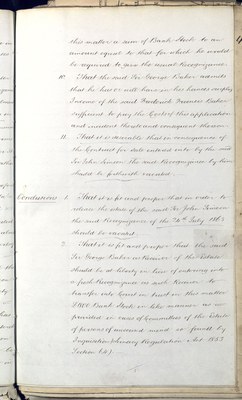 this matter a sum of Bank Stock to an
amount equal to that for which he would
be required to give the usual Recognizance.
10. That the said Sir George Baker admits
that he has or will have in his hands ample
Income of the said Frederick Francis Baker
sufficient to pay the Costs of this application
and incident thereto and consequent thereon.
11. That it is desirable that in consequence of
the Contract for sale entered into by the said
Sir John the said Recognizance by him
should be forthwith vacated.
Conclusions 1. That it is fit and proper that in order to
relieve the estate of the said Sir John
the said Recognizance of the 24th July 1863
should be vacated.
2. That it is fit and proper that the said
Sir George Baker as Receiver of the Estate
should be at liberty in lieu of entering into
a fresh Recognizance as such Receiver to
transfer into Court in trust in this matter
£800 Bank Stock in like manner as is
provided in case of Committees of the Estate
of persons of unsound mind so found by
Inquisition Lunacy Regulation Act 1853
Section